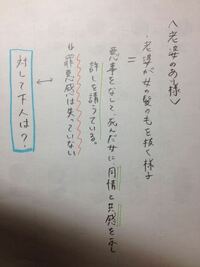 〈老婆のあり様〉
・老婆が女の髪のもを抜く様子
=
悪事をなして、死んだ女に、同情と共感を示し
許しを請うている。
⇓罪悪感は失っていない
↕
対して下人は?